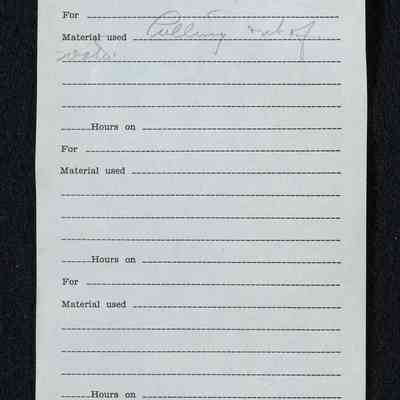 For
Material used Pulling out of
water
Hours on
For
Material used
Hours on
For
Material used
Hours on